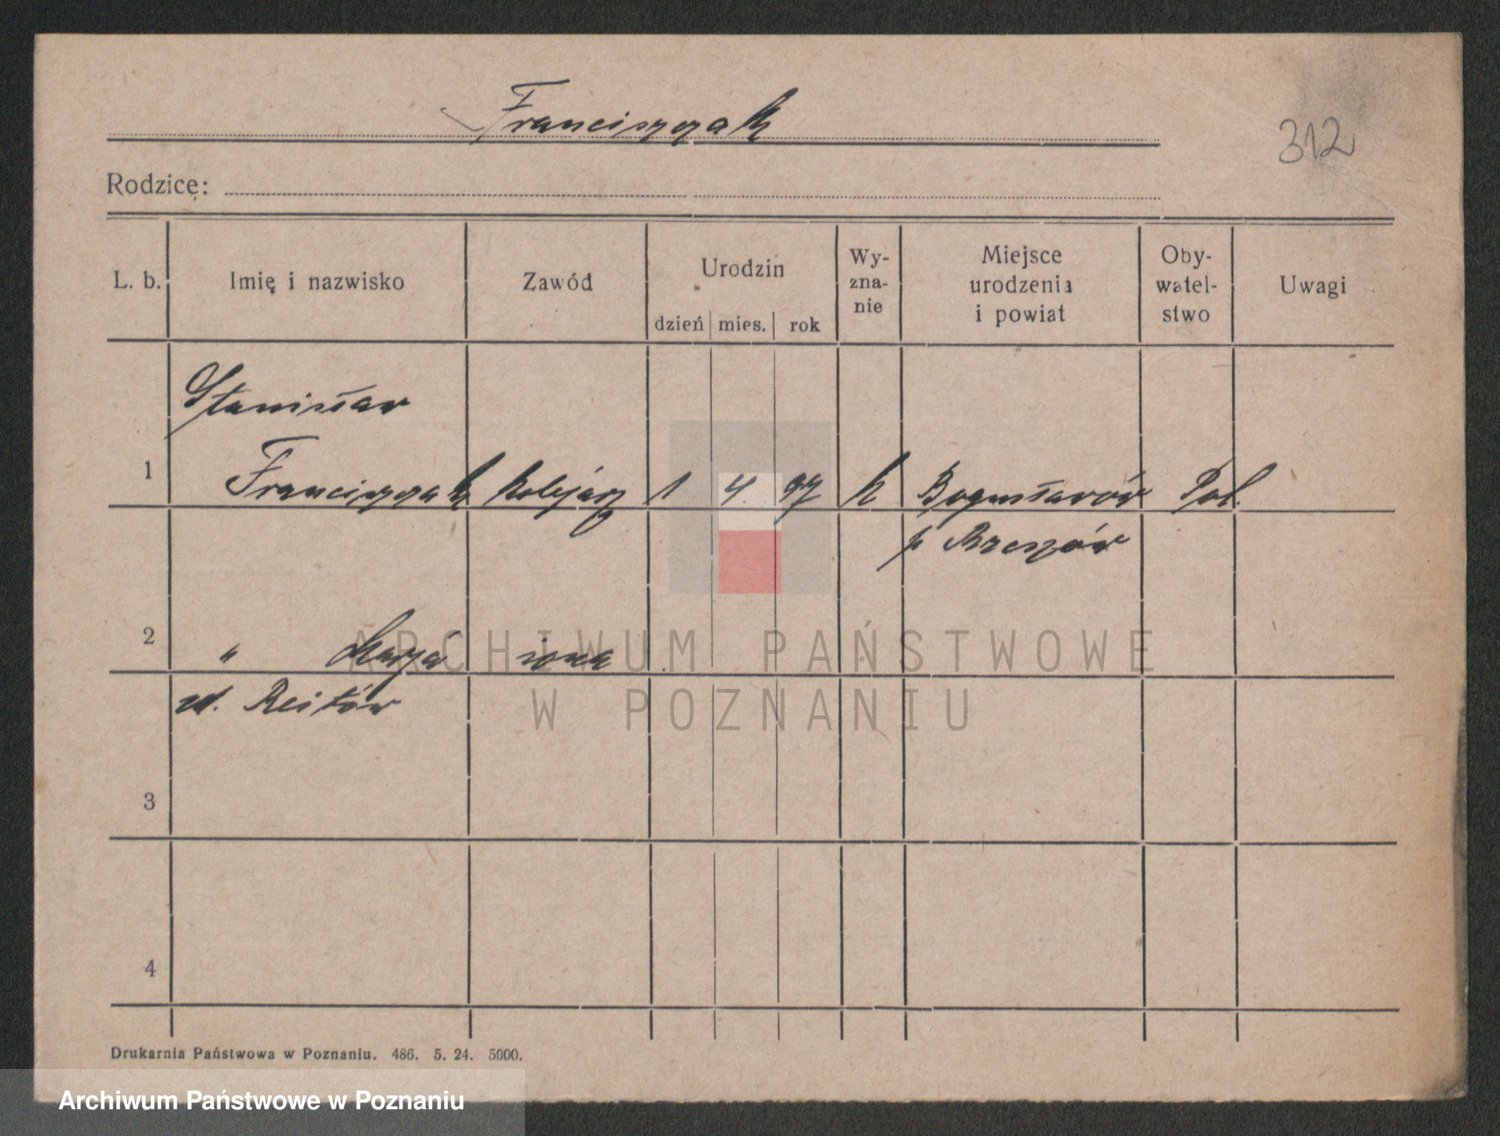 Franciszczak
312
Rodzice:
L. b.
Imię i nazwisko
Zawód
Urodzin
dzień mies. rok
Wy-
zna-
nie
Miejsce
urodzenia
i powiat
Oby-
watel-
stwo
Uwagi
Stanisław
1 Franciszczak kolejarz 1 4. 97 k Bogusławów Pol.
p Rzeszów
2 " Marja żona
3
4
Drukarnia Państwowa w Poznaniu. 486. 5. 24. 5000.
ARCHIWUM PAŃSTWOWE
W POZNANIU
Archiwum Państwowe w Poznaniu